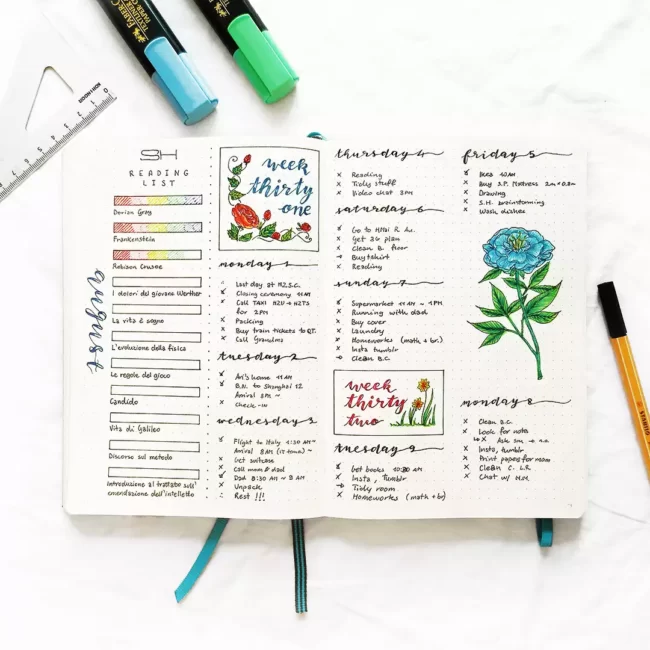 FABER-CASTELL
TEXTLINER
august
SH
READING
LIST
Dorian Gray
Frankenstein
Robison Crusoe
I dolori del giovane Werther
La vita è sogno
L'evoluzione della fisica
Le regole del gioco
Candido
Vita di Galileo
Discorso sul metodo
Introduzione al trattato sull'
emendazione dell'intelletto
week
thirty
one
monday 1
Last day at H2.S.C.
Closing ceremony 11 AM
Call TAXI H2U → H2TS
for 2PM
Packing
Buy train tickets to QT.
Call Grandma
tuesday 2
Ari's home 11 AM
B.N. to Shanghai 12
Arrival 5PM ~
Check-in
wednesday 3
Flight to Italy 1:30 AM~
Arrival 8AM (IT time) ~
Get suitcase
Call mum & dad
Dad 8:30 AM ~ 9 AM
Unpack
Rest !!!
thursday 4
Reading
Tidy stuff
Video chat 3PM
saturday 6
Go to
Get 3G plan
Clean B. floor
Buy tshirt
Reading
sunday 7
Supermarket 11 AM ~ 1 PM
Running with dad
Buy cover
Laundry
Homeworks (math + br.)
Insta tumblr
Clean B.C.
week
thirty
two
tuesday 9
Get books 10:30 AM
Insta, Tumblr
Tidy room
Homeworks (math + br)
friday 5
10 AM
Buy S.P. Mattress 2m × 0.8m
Drawing
S.H. brainstorming
Wash dishes
monday 8
Clean B.C.
Look for nota
Ask
Insta, tumblr
Print papers for room
Clean C. L.R.
Chat w/ M.M.
STABILO